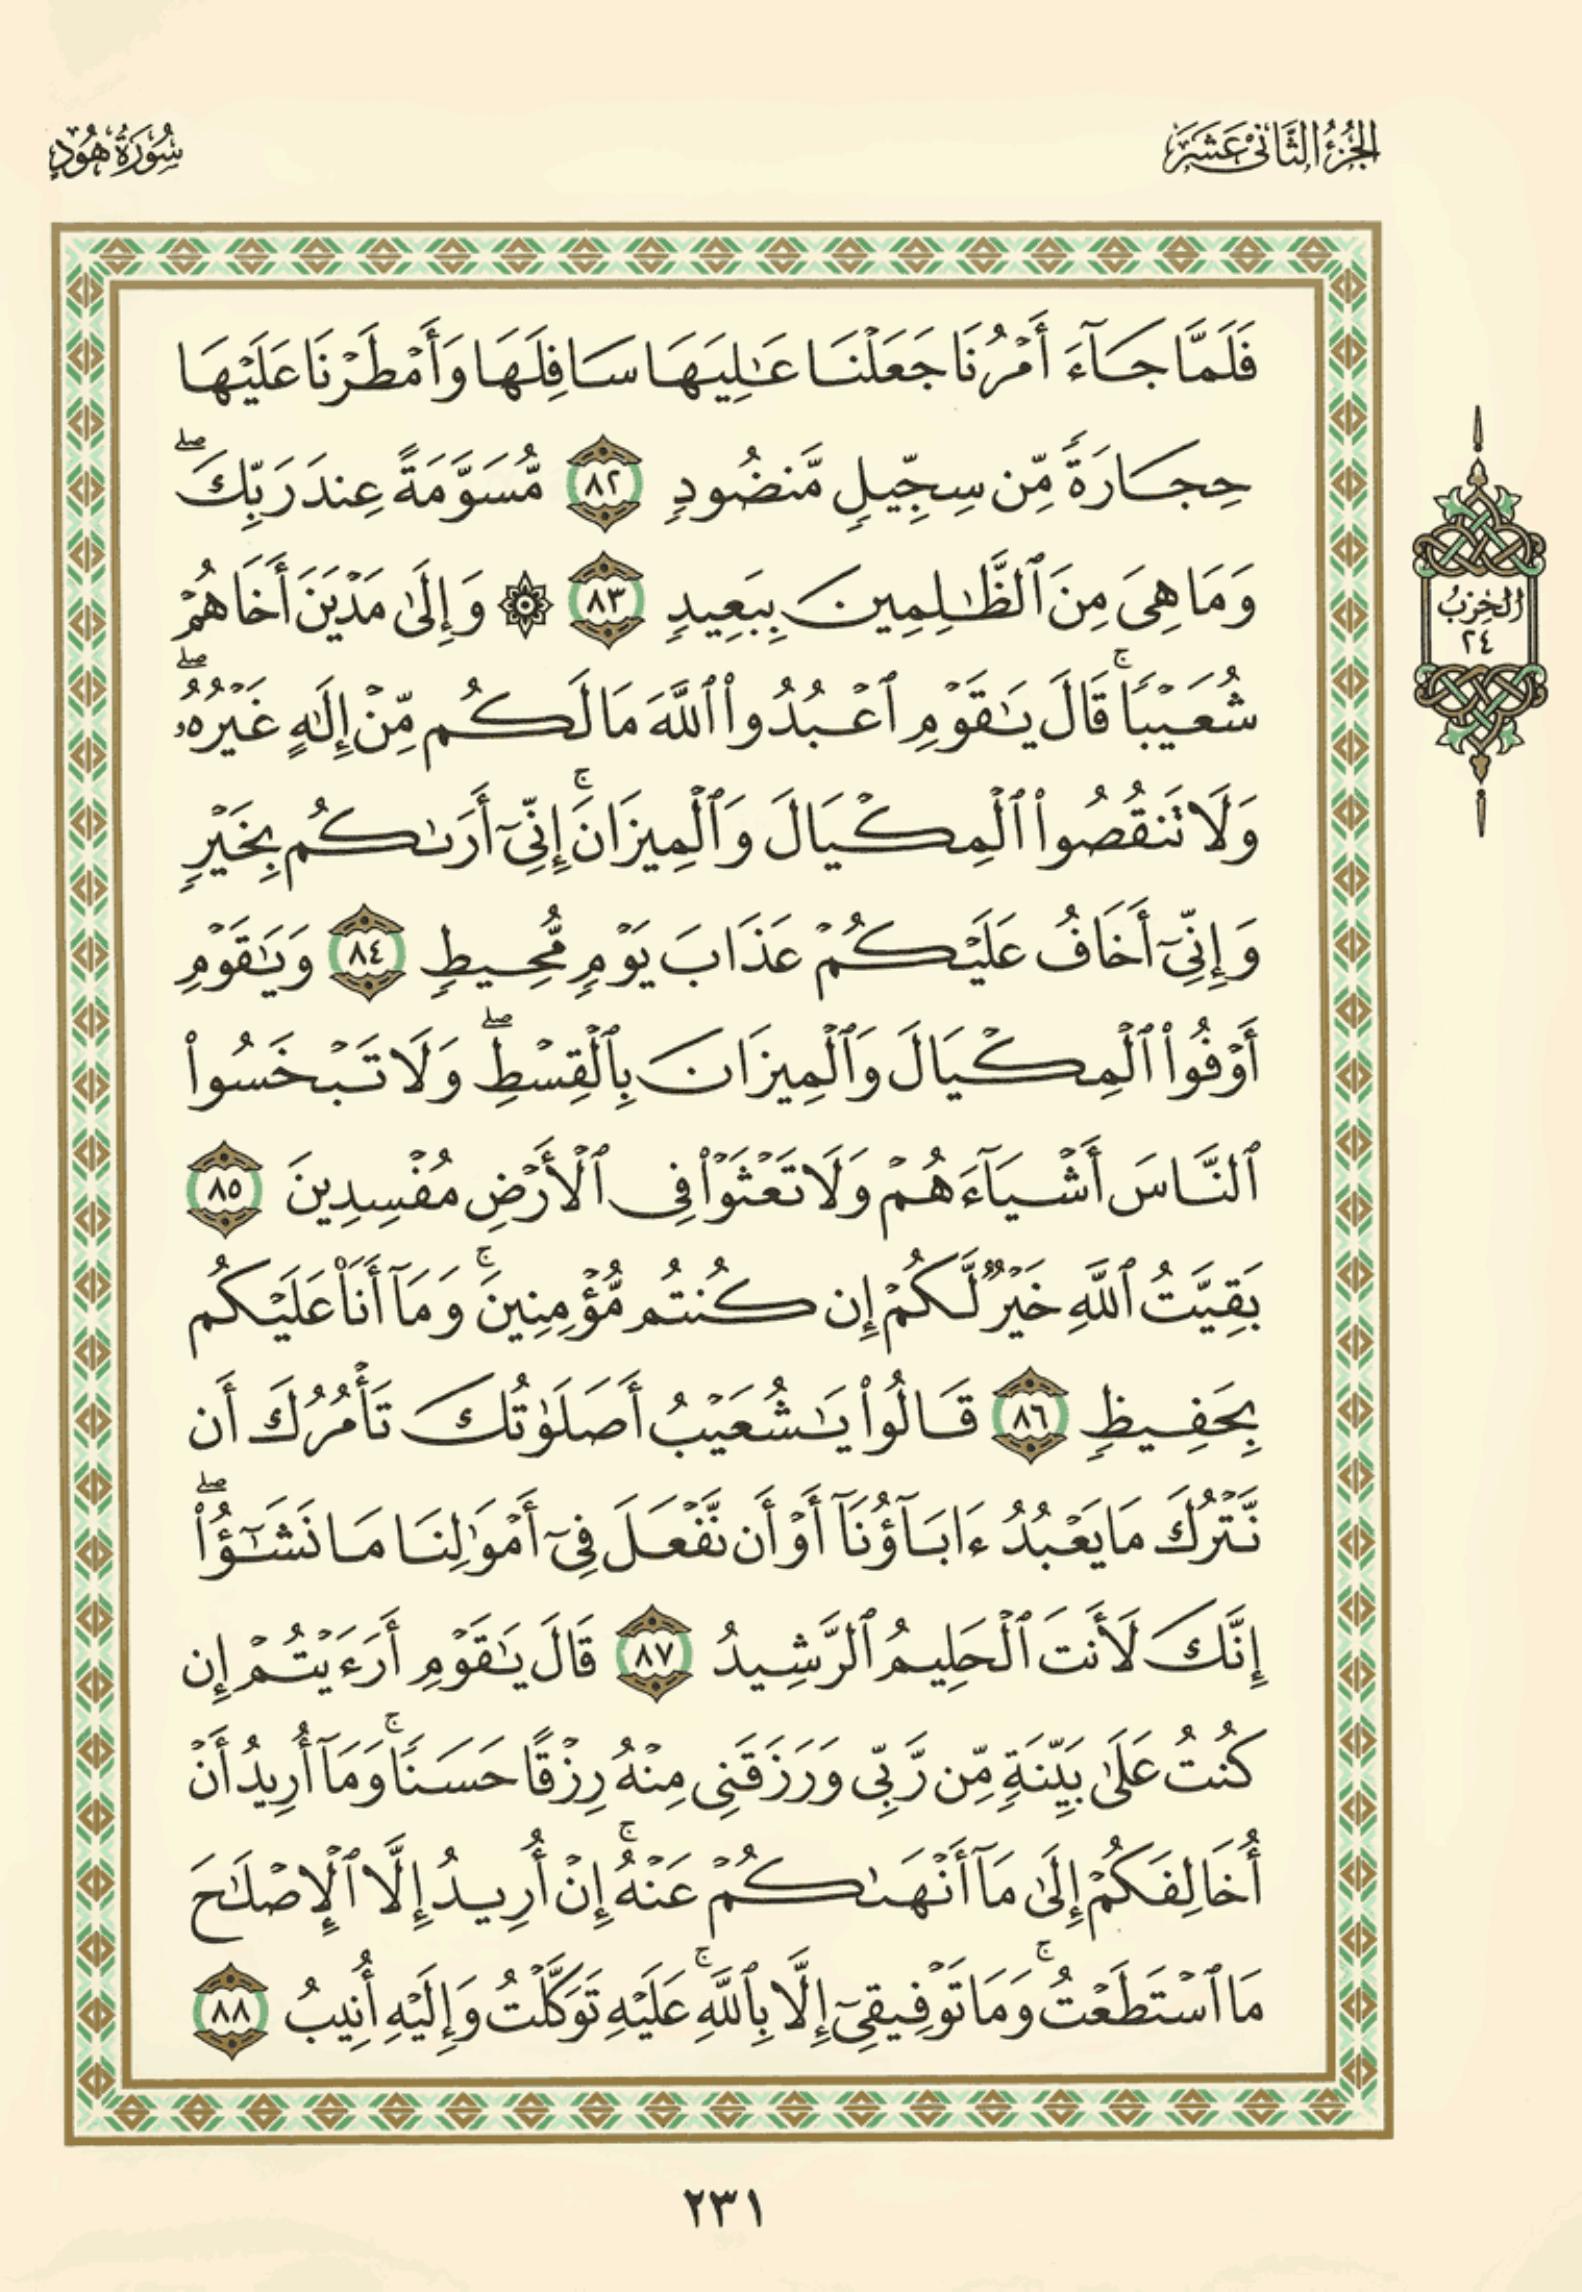 الجزء الثاني عشر
سورة هود
فَلَمَّا جَآءَ أَمْرُنَا جَعَلْنَا عَٰلِيَهَا سَافِلَهَا وَأَمْطَرْنَا عَلَيْهَا
حِجَارَةً مِّن سِجِّيلٍ مَّنضُودٍ ٨٢ مُّسَوَّمَةً عِندَ رَبِّكَ ۖ
وَمَا هِىَ مِنَ ٱلظَّٰلِمِينَ بِبَعِيدٍ ٨٣ ۞ وَإِلَىٰ مَدْيَنَ أَخَاهُمْ
شُعَيْبًا ۚ قَالَ يَٰقَوْمِ ٱعْبُدُوا۟ ٱللَّهَ مَا لَكُم مِّنْ إِلَٰهٍ غَيْرُهُۥ ۖ
وَلَا تَنقُصُوا۟ ٱلْمِكْيَالَ وَٱلْمِيزَانَ ۚ إِنِّىٓ أَرَىٰكُم بِخَيْرٍ
وَإِنِّىٓ أَخَافُ عَلَيْكُمْ عَذَابَ يَوْمٍ مُّحِيطٍ ٨٤ وَيَٰقَوْمِ
أَوْفُوا۟ ٱلْمِكْيَالَ وَٱلْمِيزَانَ بِٱلْقِسْطِ ۖ وَلَا تَبْخَسُوا۟
ٱلنَّاسَ أَشْيَآءَهُمْ وَلَا تَعْثَوْا۟ فِى ٱلْأَرْضِ مُفْسِدِينَ ٨٥
بَقِيَّتُ ٱللَّهِ خَيْرٌ لَّكُمْ إِن كُنتُم مُّؤْمِنِينَ ۚ وَمَآ أَنَا۠ عَلَيْكُم
بِحَفِيظٍ ٨٦ قَالُوا۟ يَٰشُعَيْبُ أَصَلَوٰتُكَ تَأْمُرُكَ أَن
نَّتْرُكَ مَا يَعْبُدُ ءَابَآؤُنَآ أَوْ أَن نَّفْعَلَ فِىٓ أَمْوَٰلِنَا مَا نَشَٰٓؤُا۟ ۖ
إِنَّكَ لَأَنتَ ٱلْحَلِيمُ ٱلرَّشِيدُ ٨٧ قَالَ يَٰقَوْمِ أَرَءَيْتُمْ إِن
كُنتُ عَلَىٰ بَيِّنَةٍ مِّن رَّبِّى وَرَزَقَنِى مِنْهُ رِزْقًا حَسَنًا ۚ وَمَآ أُرِيدُ أَنْ
أُخَالِفَكُمْ إِلَىٰ مَآ أَنْهَىٰكُمْ عَنْهُ ۚ إِنْ أُرِيدُ إِلَّا ٱلْإِصْلَٰحَ
مَا ٱسْتَطَعْتُ ۚ وَمَا تَوْفِيقِىٓ إِلَّا بِٱللَّهِ ۚ عَلَيْهِ تَوَكَّلْتُ وَإِلَيْهِ أُنِيبُ ٨٨
الحزب
٢٤
٢٣١